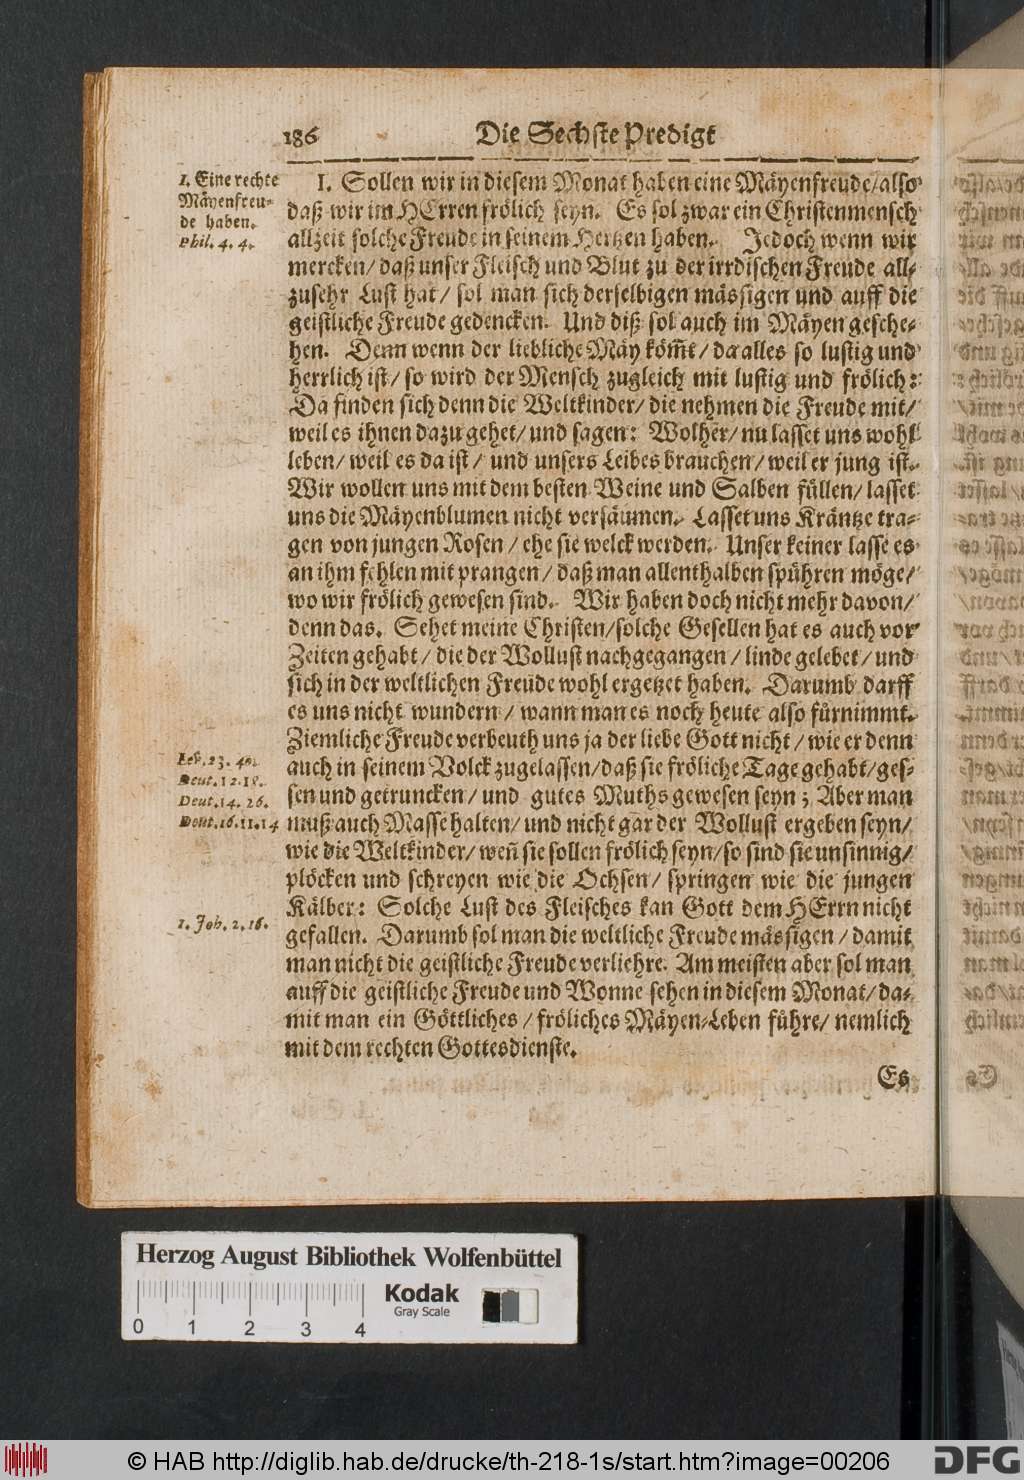 186 Die Sechste Predigt
1. Eine rechte
Mäyenfreu-
de haben.
Phil. 4. 4.
I. Sollen wir in diesem Monat haben eine Mäyenfreude/also
daß wir im HErren frölich seyn. Es sol zwar ein Christenmensch
allzeit solche Freude in seinem Hertzen haben. Jedoch wenn wir
mercken/ daß unser Fleisch und Blut zu der irrdischen Freude all-
zusehr Lust hat/ sol man sich derselbigen mässigen und auff die
geistliche Freude gedencken. Und diß sol auch im Mäyen gesche-
hen. Denn wenn der liebliche Mäy kömt/ da alles so lustig und
herrlich ist/ so wird der Mensch zugleich mit lustig und frölich:
Da finden sich denn die Weltkinder/ die nehmen die Freude mit/
weil es ihnen dazu gehet/ und sagen: Wolher/ nu lasset uns wohl
leben/ weil es da ist/ und unsers Leibes brauchen/ weil er jung ist.
Wir wollen uns mit dem besten Weine und Salben füllen/ lasset
uns die Mäyenblumen nicht versäumen. Lasset uns Kräntze tra-
gen von jungen Rosen/ ehe sie welck werden. Unser keiner lasse es
an ihm fehlen mit prangen/ daß man allenthalben spühren möge/
wo wir frölich gewesen sind. Wir haben doch nicht mehr davon/
denn das. Sehet meine Christen/solche Gesellen hat es auch vor
Zeiten gehabt/ die der Wollust nachgegangen/ linde gelebet/ und
sich in der weltlichen Freude wohl ergetzet haben. Darumb darff
es uns nicht wundern/ wann man es noch heute also fürnimmt.
Ziemliche Freude verbeuth uns ja der liebe Gott nicht/ wie er denn
auch in seinem Volck zugelassen/daß sie fröliche Tage gehabt/ges-
sen und getruncken/ und gutes Muths gewesen seyn; Aber man
muß auch Masse halten/ und nicht gar der Wollust ergeben seyn/
wie die Weltkinder/ weñ sie sollen frölich seyn/so sind sie unsinnig/
plöcken und schreyen wie die Ochsen/ springen wie die jungen
Kälber: Solche Lust des Fleisches kan Gott dem HErrn nicht
gefallen. Darumb sol man die weltliche Freude mässigen/ damit
man nicht die geistliche Freude verliehre. Am meisten aber sol man
auff die geistliche Freude und Wonne sehen in diesem Monat/ da-
mit man ein Göttliches/ fröliches Mäyen-Leben führe/ nemlich
mit dem rechten Gottesdienste.
Lev. 23. 40.
Deut. 12. 18.
Deut. 14. 26.
Deut. 16. 11. 14
1. Joh. 2. 16.
Es
Herzog August Bibliothek Wolfenbüttel
Kodak
Gray Scale
0 1 2 3 4
© HAB http://diglib.hab.de/drucke/th-218-1s/start.htm?image=00206
DFG